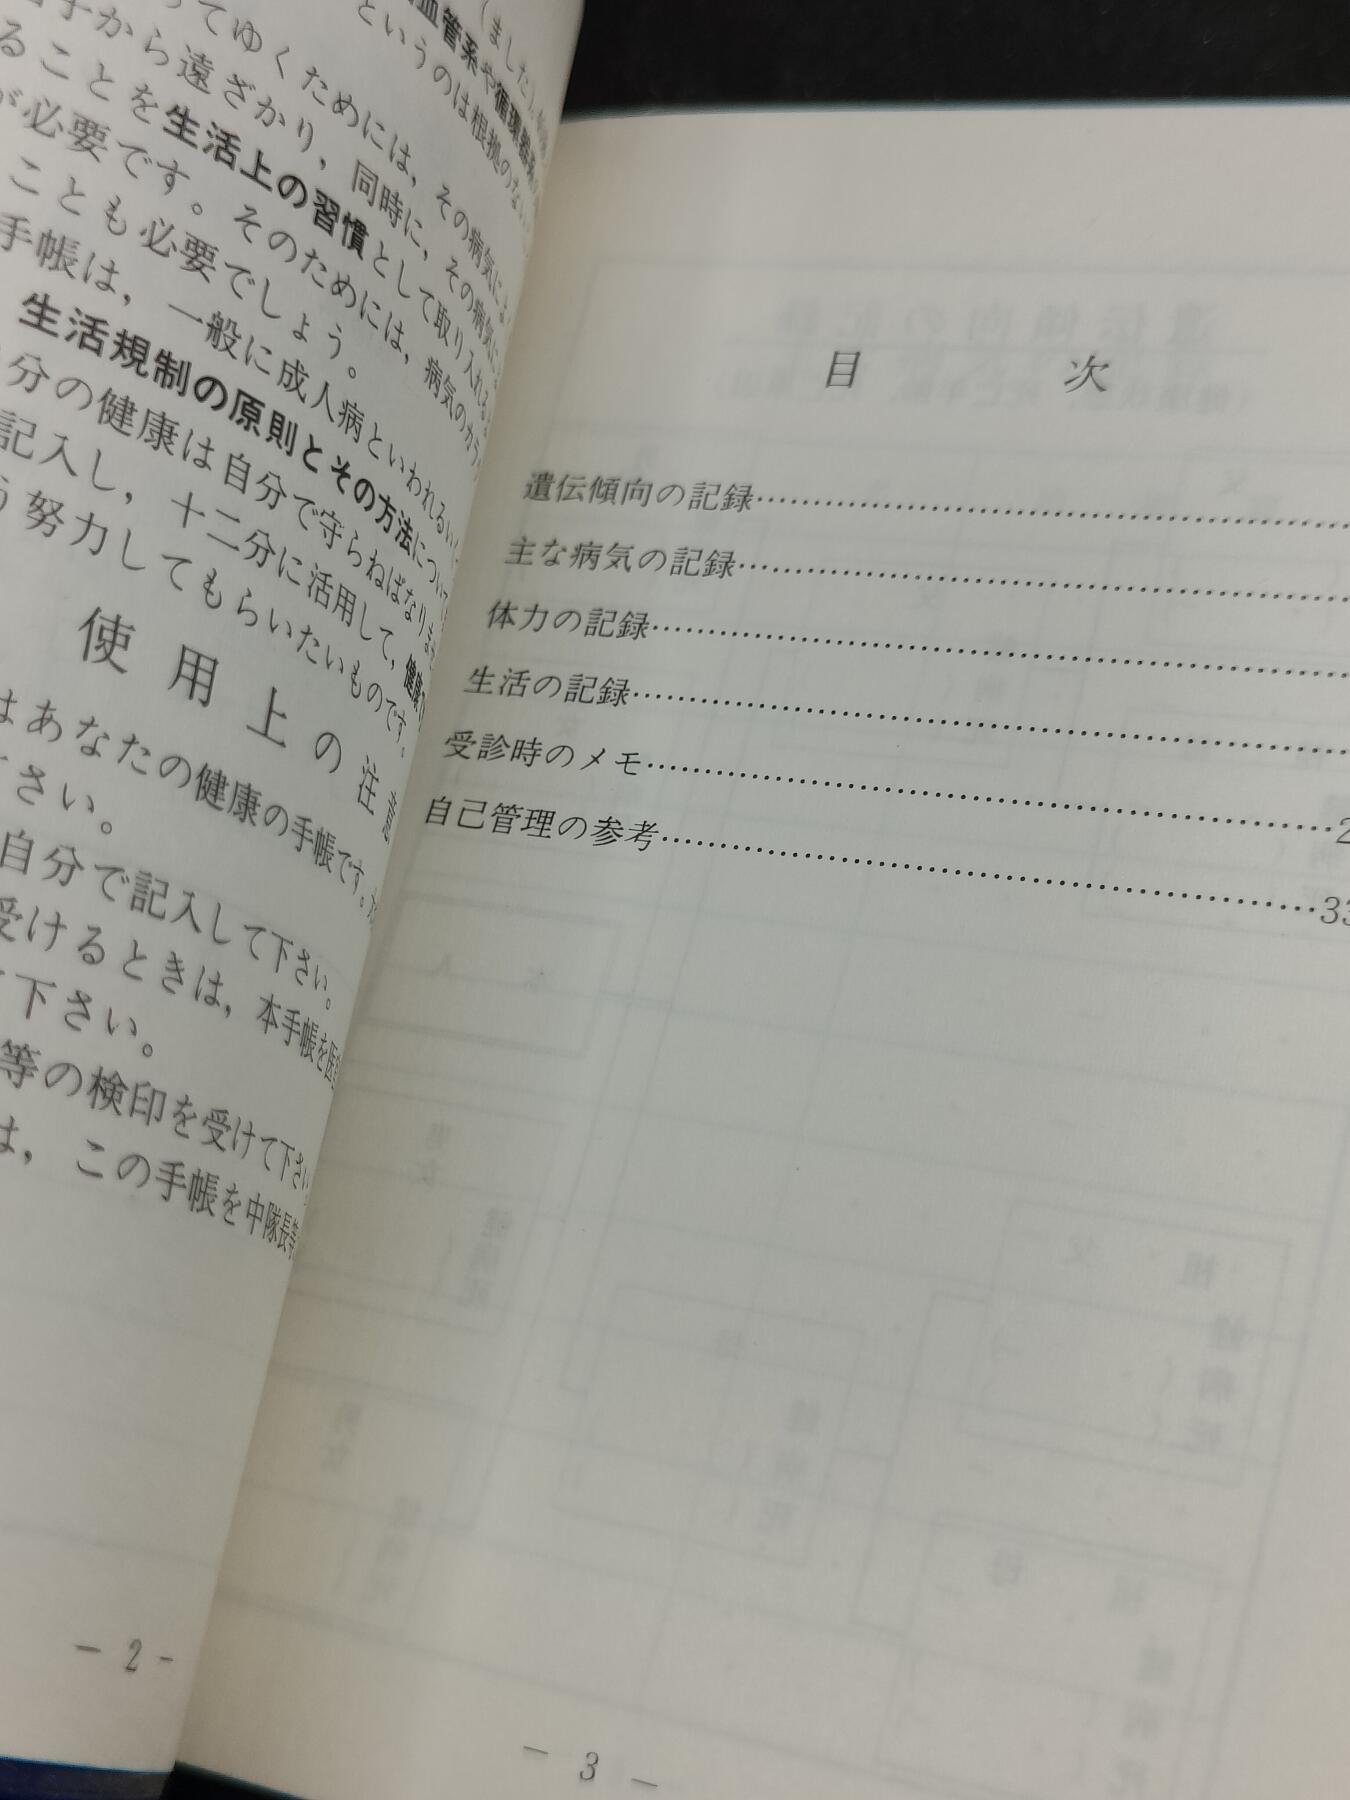 (ました)
血管系や循環器系
というのは根拠のない
ってゆくためには，その病気によ
子から遠ざかり，同時に，その病気に
ることを生活上の習慣として取り入れる
が必要です。そのためには，病気のカラ
ことも必要でしょう。
手帳は，一般に成人病といわれるい
生活規制の原則とその方法につい
分の健康は自分で守らねばなりま
記入し，十二分に活用して，健康
う努力してもらいたいものです。
使用上の注意
はあなたの健康の手帳です。
下さい。
自分で記入して下さい。
受けるときは，本手帳を医
て下さい。
等の検印を受けて下さい
は，この手帳を中隊長等
－2－
目次
遺伝傾向の記録
主な病気の記録
体力の記録
生活の記録
受診時のメモ……2
自己管理の参考……33
－3－